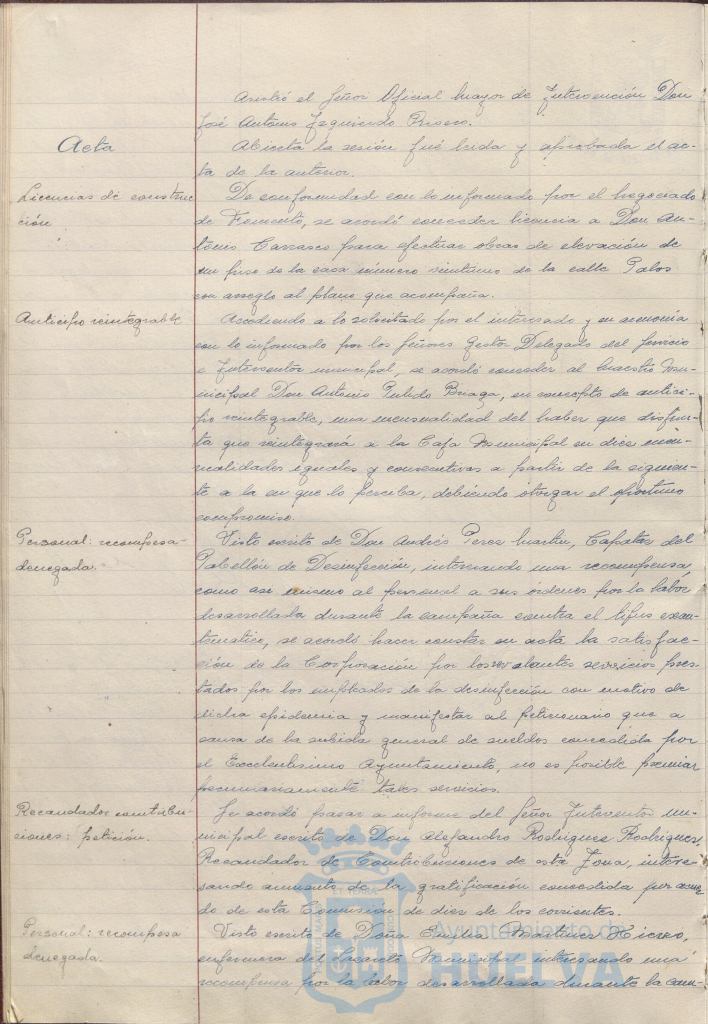 Asistió el Señor Oficial Mayor de Intervención Don
José Antonio Izquierdo
Acta
Abierta la sesión fué leida y aprobada el ac-
ta de la anterior.
Licencias de construc
ción
De conformidad con lo informado por el Negociado
de Fomento, se acordó conceder licencia a Don An-
tonio Carrasco para efectuar obras de elevación de
un piso de la casa número veintiuno de la calle Palos
con arreglo al plano que acompaña.
Anticipo reintegrable
Accediendo a lo solicitado por el interesado y en armonía
con lo informado por los Señores Gestor Delegado del Servicio
e Interventor municipal, se acordó conceder al Maestro Mu-
nicipal Don Antonio Pulido Braga, en concepto de antici-
po reintegrable, una mensualidad del haber que disfru-
ta que reintegrará a la Caja Municipal en diez men-
sualidades iguales y consecutivas a partir de la siguien-
te a la en que lo perciba, debiendo otorgar el oportuno
compromiso.
Personal: recompesa-
denegada.
Visto escrito de Don Andrés Perez Martin, Capataz del
Pabellón de Desinfección, interesando una recompensa,
como asi mismo al personal a sus órdenes por la labor
desarrollada durante la campaña contra el tifus exan-
temático, se acordó hacer constar en acta la satisfac-
ción de la Corporación por los relevantes servicios pres-
tados por los empleados de la desinfección con motivo de
dicha epidemia y manifestar al peticionario que a
causa de la subida general de sueldos concedida por
el Excelentisimo Ayuntamiento, no es posible premiar
pecuniariamente tales servicios.
Recaudador contribu-
ciones: petición.
Se acordó pasar a informe del Señor Interventor mu-
nicipal escrito de Don Alejandro Rodriguez Rodriguez,
Recaudador de Contribuciones de esta Zona, intere-
sando aumento de la gratificación concedida por acuer
do de esta Comisión de diez de los corrientes.
Personal: recompesa
denegada.
Visto escrito de Doña Emilia Martinez Hierro,
enfermera del Lazareto Municipal interesando una
recompensa por la labor desarrollada durante la cam-
Ayuntamiento de
HUELVA